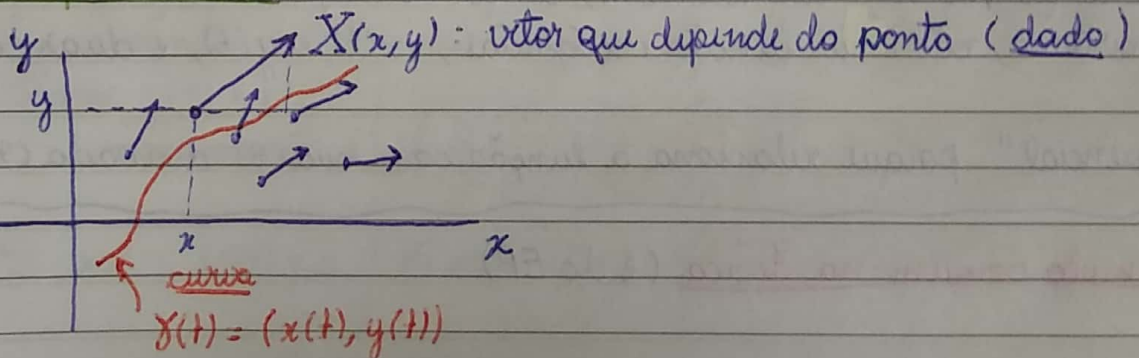 y X(x,y): vetor que depende do ponto (dado)
y
x x
curva
γ(t) = (x(t), y(t))